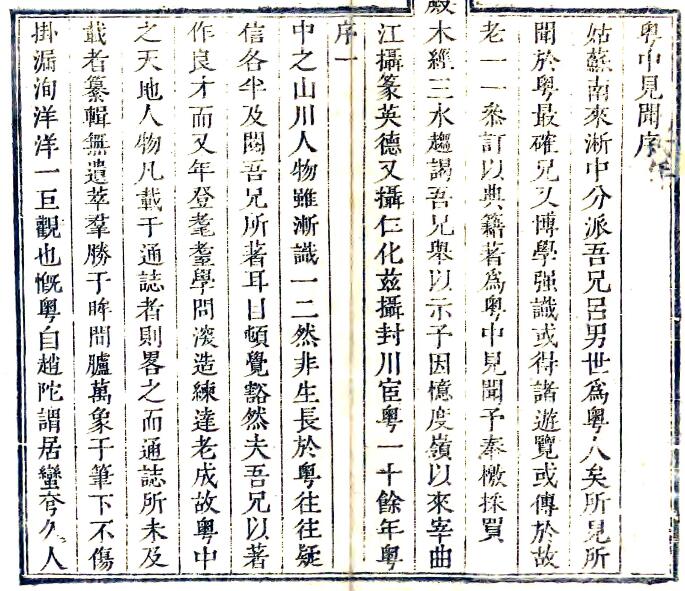 粤中見聞序
姑蘇南來淅中分派吾兄呂男世爲粤人矣所見所
聞於粤最確兄又博學强識或得諸遊覽或傳於故
老一一叅訂以典籍著爲粤中見聞予奉檄採買
殿木經三水趨謁吾兄舉以示予因憶度嶺以來宰曲
江攝篆英德又攝仁化兹攝封川宦粤一十餘年粤
序一
中之山川人物雖漸識一二然非生長於粤往往疑
信各半及閱吾兄所著耳目頓覺豁然夫吾兄以著
作良才而又年登耄耋學問深造練達老成故粤中
之天地人物凡載于通誌者則畧之而通誌所未及
載者纂輯無遺萃羣勝于眸間臚萬象于筆下不傷
掛漏洵洋洋一巨觀也慨粤自趙陀謂居蠻夷久人